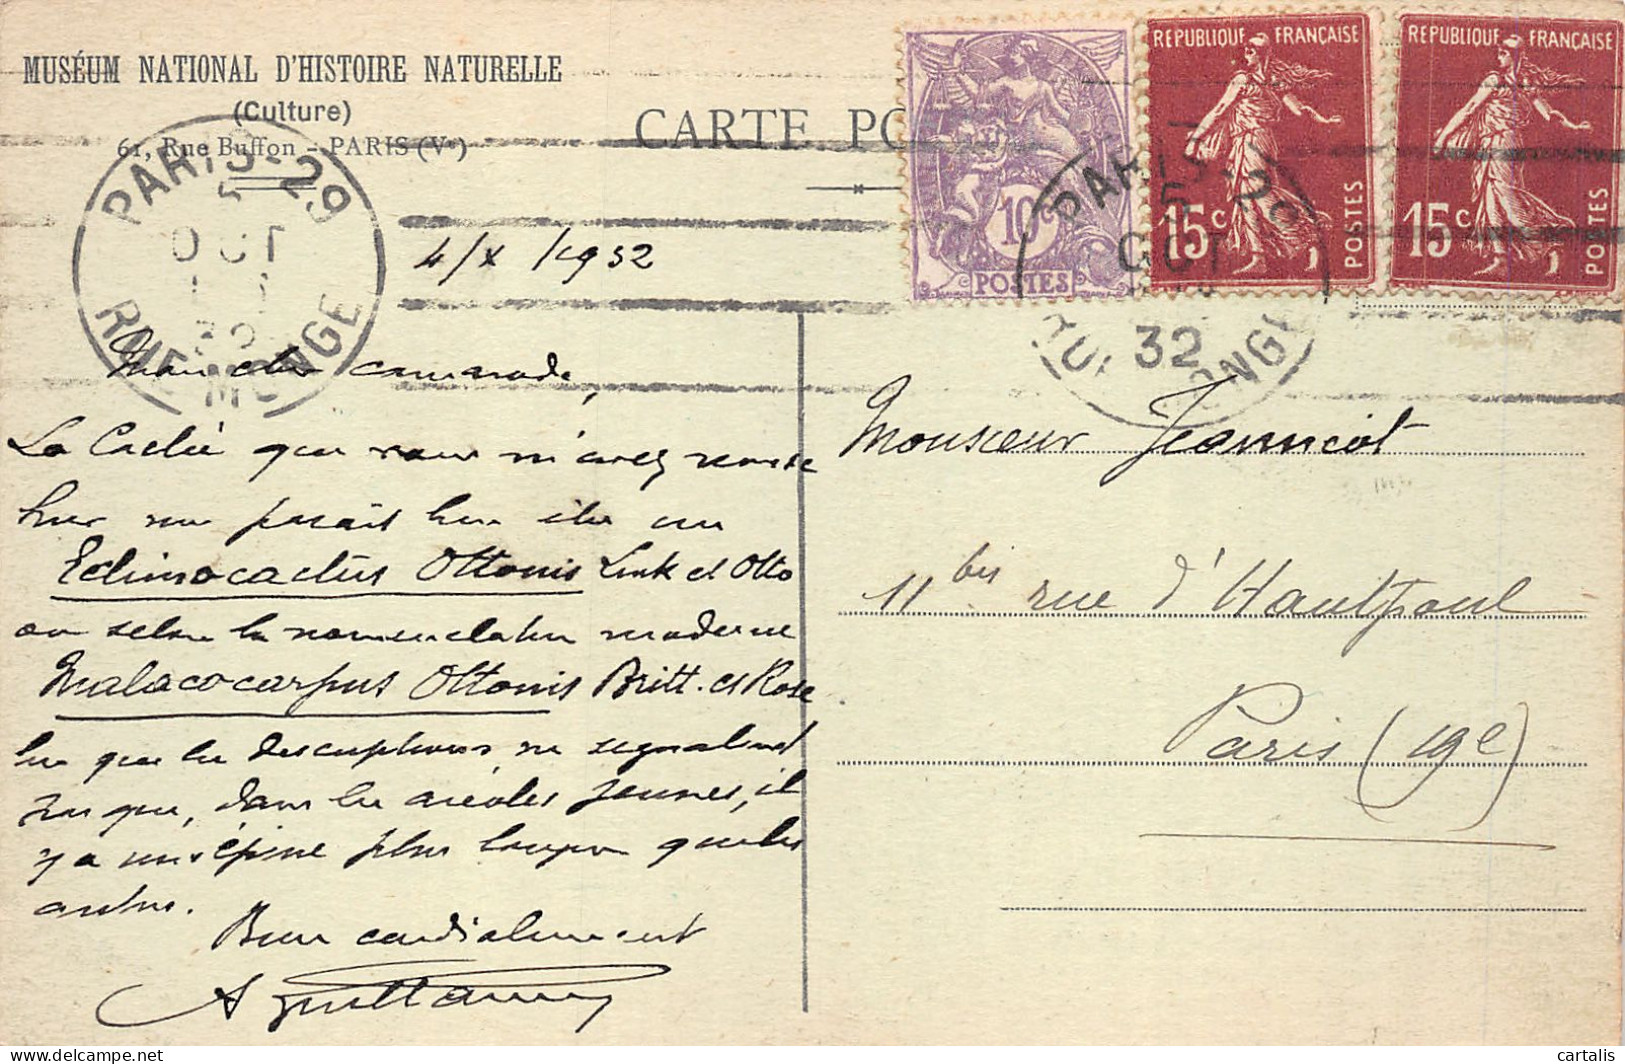 MUSÉUM NATIONAL D'HISTOIRE NATURELLE
(Culture)
61, Rue Buffon - PARIS (Ve)
CARTE PO
PARIS-29
5
OCT
32
RUE MONGE
10c
POSTES
REPUBLIQUE FRANÇAISE
15c
POSTES
REPUBLIQUE FRANÇAISE
15c
POSTES
PARIS-29
5
OCT
32
RUE MONGE
4/X /1932
Mon cher camarade,
La Cactée que vous m'avez remise
hier me paraît bien être un
Echinocactus Ottonis Link et Otto
ou selon la nomenclature moderne
Malacocarpus Ottonis Britt. et Rose
bien que les descriptions ne signalent
pas que, dans les aréoles jeunes, il
y a une épine plus longue que les
autres.
Bien cordialement
A Guillaumin
Monsieur Jeanniot
11 bis rue d'Hautpoul
Paris (19e)
cartalis
www.delcampe.net